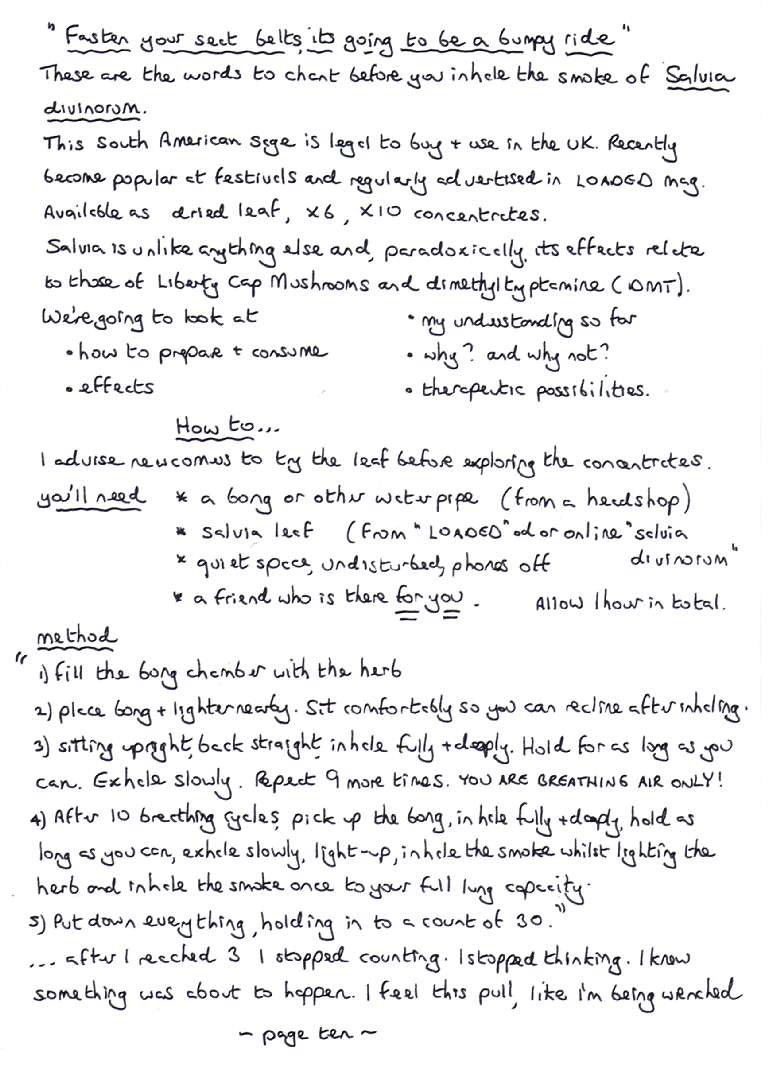 "Fasten your seat belts, its going to be a bumpy ride"
These are the words to chant before you inhale the smoke of Salvia
divinorum.
This South American sage is legal to buy + use in the UK. Recently
become popular at festivals and regularly advertised in LOADED mag.
Available as dried leaf, x6, x10 concentrates.
Salvia is unlike anything else and, paradoxically, its effects relate
to those of Liberty Cap Mushrooms and dimethyltyptamine (DMT).
We're going to look at
• how to prepare + consume
• effects
• my understanding so far
• why? and why not?
• therapeutic possibilities.
How to...
I advise newcomers to try the leaf before exploring the concentrates.
you'll need * a bong or other waterpipe (from a headshop)
* salvia leaf (from "LOADED" ad or online "salvia divinorum"
* quiet space, undisturbed, phones off
* a friend who is there for you. Allow 1 hour in total.
method
" 1) fill the bong chamber with the herb
2) place bong + lighter nearby. Sit comfortably so you can recline after inhaling.
3) sitting upright, back straight, inhale fully + deeply. Hold for as long as you
can. Exhale slowly. Repeat 9 more times. YOU ARE BREATHING AIR ONLY!
4) After 10 breathing cycles, pick up the bong, inhale fully + deeply, hold as
long as you can, exhale slowly, light-up, inhale the smoke whilst lighting the
herb and inhale the smoke once to your full lung capacity.
5) Put down everything, holding in to a count of 30."
... after I reached 3 I stopped counting. I stopped thinking. I knew
something was about to happen. I feel this pull, like i'm being wrenched
~ page ten ~